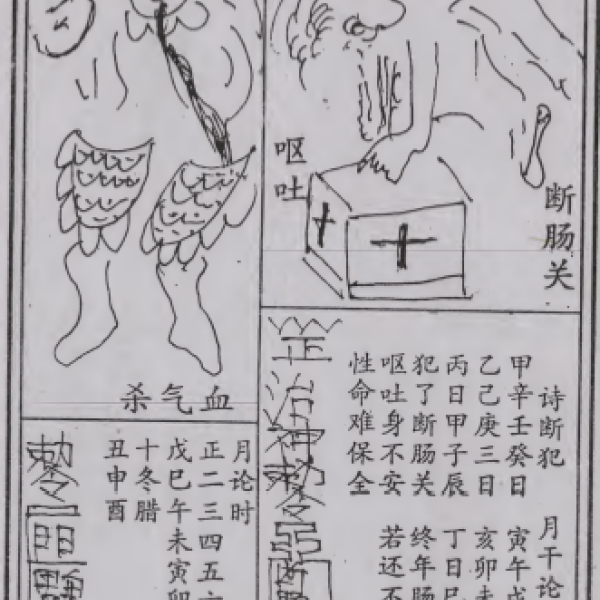 断肠关
呕吐
诗断犯
甲辛壬癸日
乙己庚三日
丙日甲子辰
犯了断肠关
呕吐身不安
性命难保全
月干论
寅午
亥卯未
丁日巳
终年肠
若还不
血气杀
月论时
正二三四五六
戊巳午未寅卯
十冬腊
丑申酉